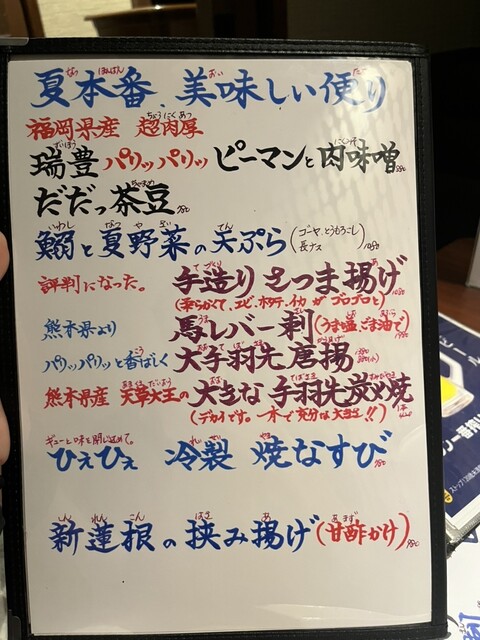 夏本番、美味しい便り
福岡県産 超肉厚
瑞豊 パリッパリッ ピーマンと肉味噌
だだっ茶豆
鰯と夏野菜の天ぷら(ゴーヤ、とうもろこし 長ナス)
評判になった。 手造りさつま揚げ
(柔らかくて、エビ、ホタテ、イカがゴロゴロと)
熊本県より 馬レバー刺(うま塩ごま油で)
パリッパリッと香ばしく 大手羽先唐揚
熊本県産 天草大王の 大きな手羽先炭火焼
(デカイです。一本で充分な大きさ!!)
ギューと味を閉じ込めて。
ひえひえ 冷製 焼なすび
新蓮根の挟み揚げ(甘酢かけ)